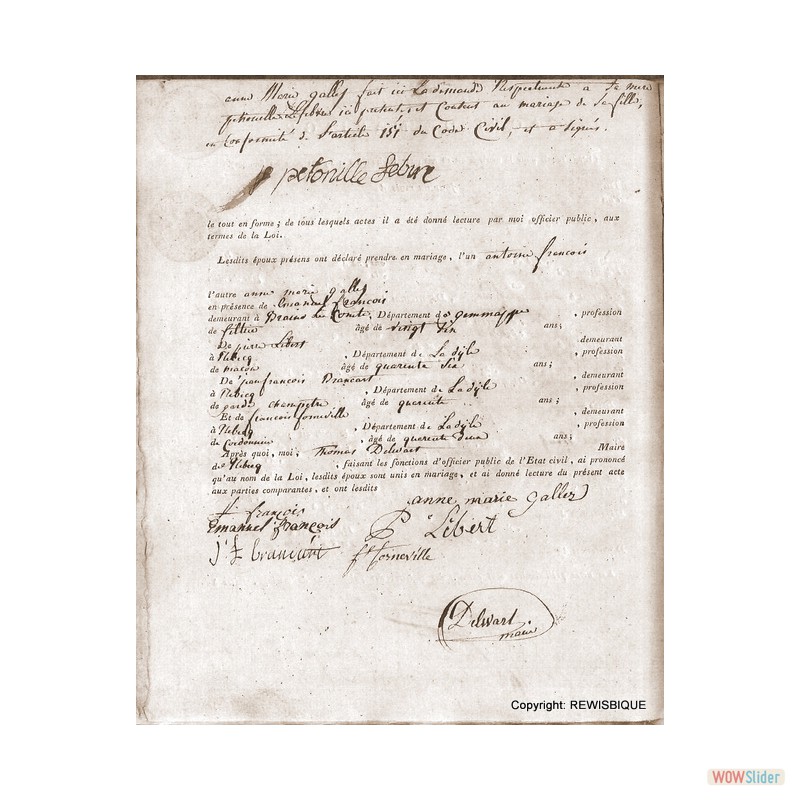 anne Marie galler fait ici La demande Respectueuse a Sa mere
petronille Lefebvre ici presente, et Consent au mariage de Sa fille,
en Conformité de L'article 151 du Code Civil, et a Signé.
petonille Febure
le tout en forme ; de tous lesquels actes il a été donné lecture par moi officier public, aux
termes de la Loi.
Lesdits époux présens ont déclaré prendre en mariage, l'un antoine francois
l'autre anne marie galler
en présence de Emanuel François
demeurant à Braine Le Comte, Département de gemmappe , profession
de âgé de vingt Six ans ;
De pierre Libert demeurant
à Rebecq , Département de La dyle , profession
de macon âgé de quarente Six ans ;
De jean francois Brancart , demeurant
à Rebecq , Département de La dyle , profession
de garde champetre âgé de quarente ans ;
Et de francois forneville , demeurant
à Rebecq , Département de La dyle , profession
de Cordonnier , âgé de quarente deux ans ;
Après quoi, moi, Thomas Delwart Maire
de Rebecq , faisant les fonctions d'officier public de l'Etat civil, ai prononcé
qu'au nom de la Loi, lesdits époux sont unis en mariage, et ai donné lecture du présent acte
aux parties comparantes, et ont lesdits
anne marie galler
francois
Emanuel françois P Libert
J F brancart f forneville
Delwart
maire
Copyright: REWISBIQUE
WOWSlider